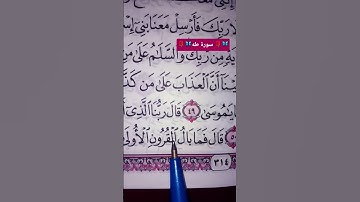 رَبِّكَ فَأَرْسِلْ مَعَنَا بَنِىٓ إِسْ
سورة طه
مِّن رَّبِّكَ وَٱلسَّلَٰمُ عَلَىٰ مَنِ
أَنَّ ٱلْعَذَابَ عَلَىٰ مَن كَذَّ
يَٰمُوسَىٰ ٤٩ قَالَ رَبُّنَا ٱلَّذِىٓ
قَالَ فَمَا بَالُ ٱلْقُرُونِ ٱلْأُولَىٰ
٣١٤